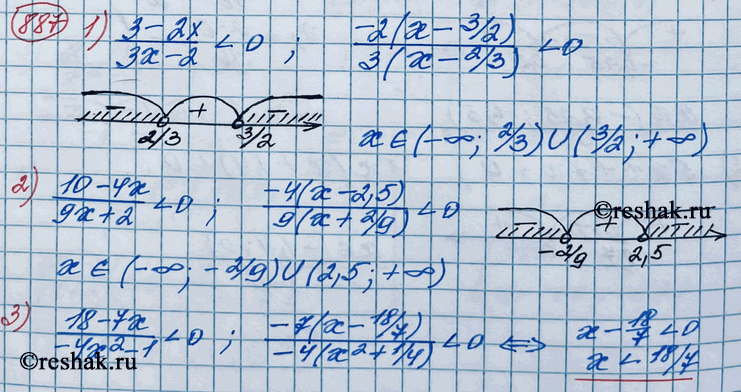 887 1) (3-2x)/(3x-2) < 0 ; (-2(x-3/2))/(3(x-2/3)) < 0
- + -
2/3 3/2
x ∈ (-∞; 2/3) ∪ (3/2; +∞)
2) (10-4x)/(9x+2) < 0 ; (-4(x-2,5))/(9(x+2/9)) < 0
©reshak.ru
- + -
-2/9 2,5
x ∈ (-∞; -2/9) ∪ (2,5; +∞)
3) (18-7x)/(-4x²-1) < 0 ; (-7(x-18/7))/(-4(x²+1/4)) < 0 ⇔ x - 18/7 < 0
x < 18/7
©reshak.ru